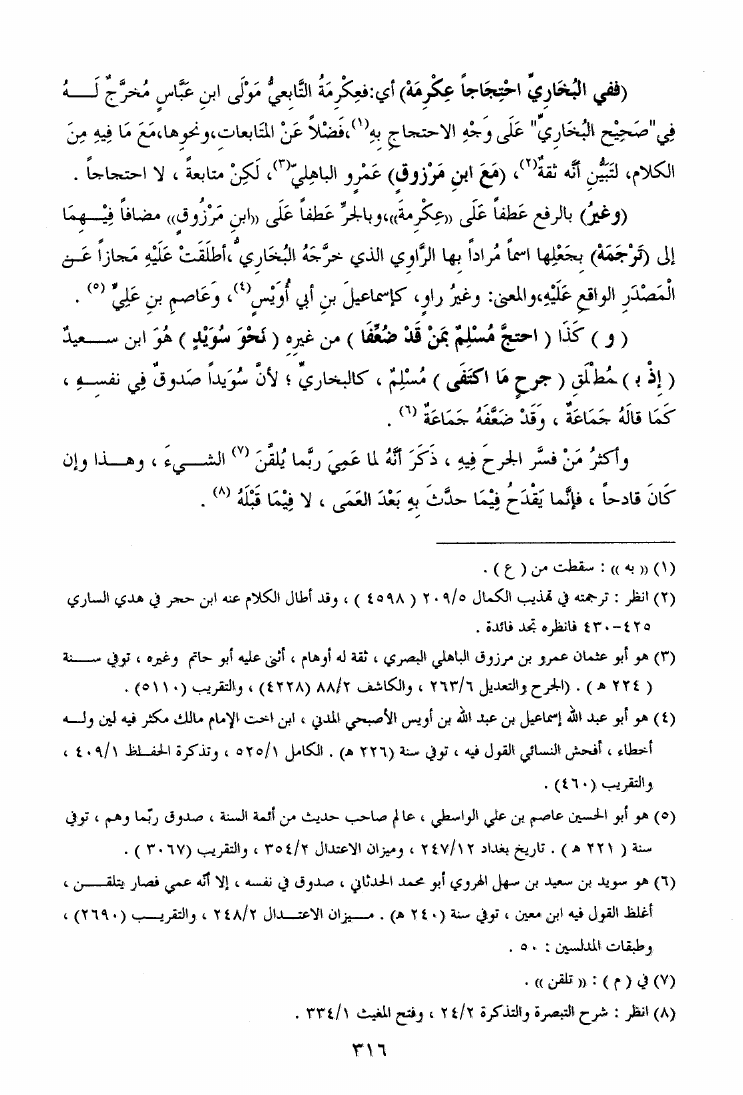 (ففي البُخَاريِّ احْتِجَاجاً عِكْرِمَهْ) أي:فعِكْرِمَةُ التَّابعيُّ مَوْلَى ابنِ عَبَّاس مُخرَّجٌ لَــــهُ
فِي"صَحِيْحِ البُخَاريِّ" عَلَى وَجْهِ الاحتجاجِ بِهِ(١)،فَضْلاً عَنْ المُتَابعاتِ،ونحوِها،مَعَ مَا فِيهِ مِنَ
الكلامِ، لتَبَيُّنِ أنَّه ثقةٌ(٢)، (مَعَ ابنِ مَرْزوقٍ) عَمْرو الباهليِّ(٣)، لَكِنْ متابعةً ، لا احتجاجاً .
(وغيرُ) بالرفعِ عَطفاً عَلَى «عِكْرِمةَ»،وبالجرِّ عطفاً عَلَى «ابنِ مَرْزُوق» مضافاً فِيْـــهِمَا
إلى (تَرْجَمَهْ) بجَعْلِها اسماً مُراداً بها الرَّاوي الذي خرَّجَهُ البُخَاري،أطلَقَتْ عَلَيْهِ مَجازاً عَـــنِ
الْمَصْدَرِ الواقعِ عَلَيْهِ،والمعنى: وغيرُ راوٍ، كإسماعيلَ بنِ أبي أُوَيْسٍ(٤)، وَعَاصمِ بنِ عَلِيٍّ (٥) .
( و ) كَذَا ( احتجَّ مُسْلِمٌ بمَنْ قَدْ ضُعِّفَا ) من غيرِهِ ( نَحْوَ سُوَيْدٍ ) هُوَ ابن ســـعيدٌ
( إذْ بـ ) مُطْلَقِ ( جرحٍ مَا اكتَفَى ) مُسْلِمٌ ، كالبخاريِّ ؛ لأنَّ سُوَيداً صَدوقٌ فِي نفســهِ ،
كَمَا قالَهُ جَمَاعَةٌ ، وَقَدْ ضَعَّفَهُ جَمَاعَةٌ (٦) .
وأكثرُ مَنْ فسَّر الجرحَ فِيهِ ، ذَكَرَ أنَّهُ لما عَمِيَ ربَّما يُلقَّنَ (٧) الشـــيءَ ، وهـــذا وإن
كَانَ قادحاً ، فإنَّما يَقْدَحُ فِيْمَا حدَّثَ بِهِ بَعْدَ العَمَى ، لا فِيْمَا قَبْلَهُ (٨) .
(١) « به » : سقطت من ( ع ) .
(٢) انظر : ترجمته في تهذيب الكمال ٢٠٩/٥ ( ٤٥٩٨ ) ، وقد أطال الكلام عنه ابن حجر في هدي الساري
٤٢٥-٤٣٠ فانظره تجد فائدة .
(٣) هو أبو عثمان عمرو بن مرزوق الباهلي البصري ، ثقة له أوهام ، أثنى عليه أبو حاتم وغيره ، توفي ســـنة
( ٢٢٤ هـ ) . (الجرح والتعديل ٢٦٣/٦ ، والكاشف ٨٨/٢ (٤٢٢٨) ، والتقريب (٥١١٠) .
(٤) هو أبو عبد الله إسماعيل بن عبد الله بن أويس الأصبحي المدني ، ابن اخت الإمام مالك مكثر فيه لين ولـــه
أخطاء ، أفحش النسائي القول فيه ، توفي سنة (٢٢٦ هـ) . الكامل ٥٢٥/١ ، وتذكرة الحفــاظ ٤٠٩/١ ،
والتقريب (٤٦٠) .
(٥) هو أبو الحسين عاصم بن علي الواسطي ، عالم صاحب حديث من أئمة السنة ، صدوق ربّما وهم ، توفي
سنة ( ٢٢١ هـ ) . تاريخ بغداد ٢٤٧/١٢ ، وميزان الاعتدال ٣٥٤/٢ ، والتقريب (٣٠٦٧ ) .
(٦) هو سويد بن سعيد بن سهل الهروي أبو محمد الحدثاني ، صدوق في نفسه ، إلا أنّه عمي فصار يتلقـــن ،
أغلظ القول فيه ابن معين ، توفي سنة (٢٤٠ هـ) . مـــيزان الاعتـــدال ٢٤٨/٢ ، والتقريـــب (٢٦٩٠) ،
وطبقات المدلسين : ٥٠ .
(٧) في ( م ) : « تلقن » .
(٨) انظر : شرح التبصرة والتذكرة ٢٤/٢ ، وفتح المغيث ٣٣٤/١ .
٣١٦